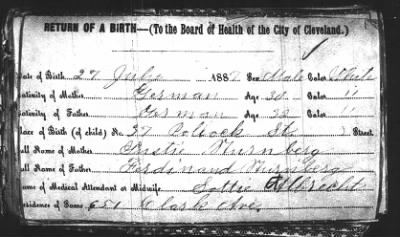 RETURN OF A BIRTH—(To the Board of Health of the City of Cleveland.)
Date of Birth 27 1887 Sex Male Color White
Nativity of Mother German Age 30 Color "
Nativity of Father German Age 32 "
Place of Birth (of child) No. 37 Street
Full Name of Mother Nurnberg
Full Name of Father Ferdinand Nurnberg
Name of Medical Attendant or Midwife Albrecht
Residence of Same 651 Clark Ave.